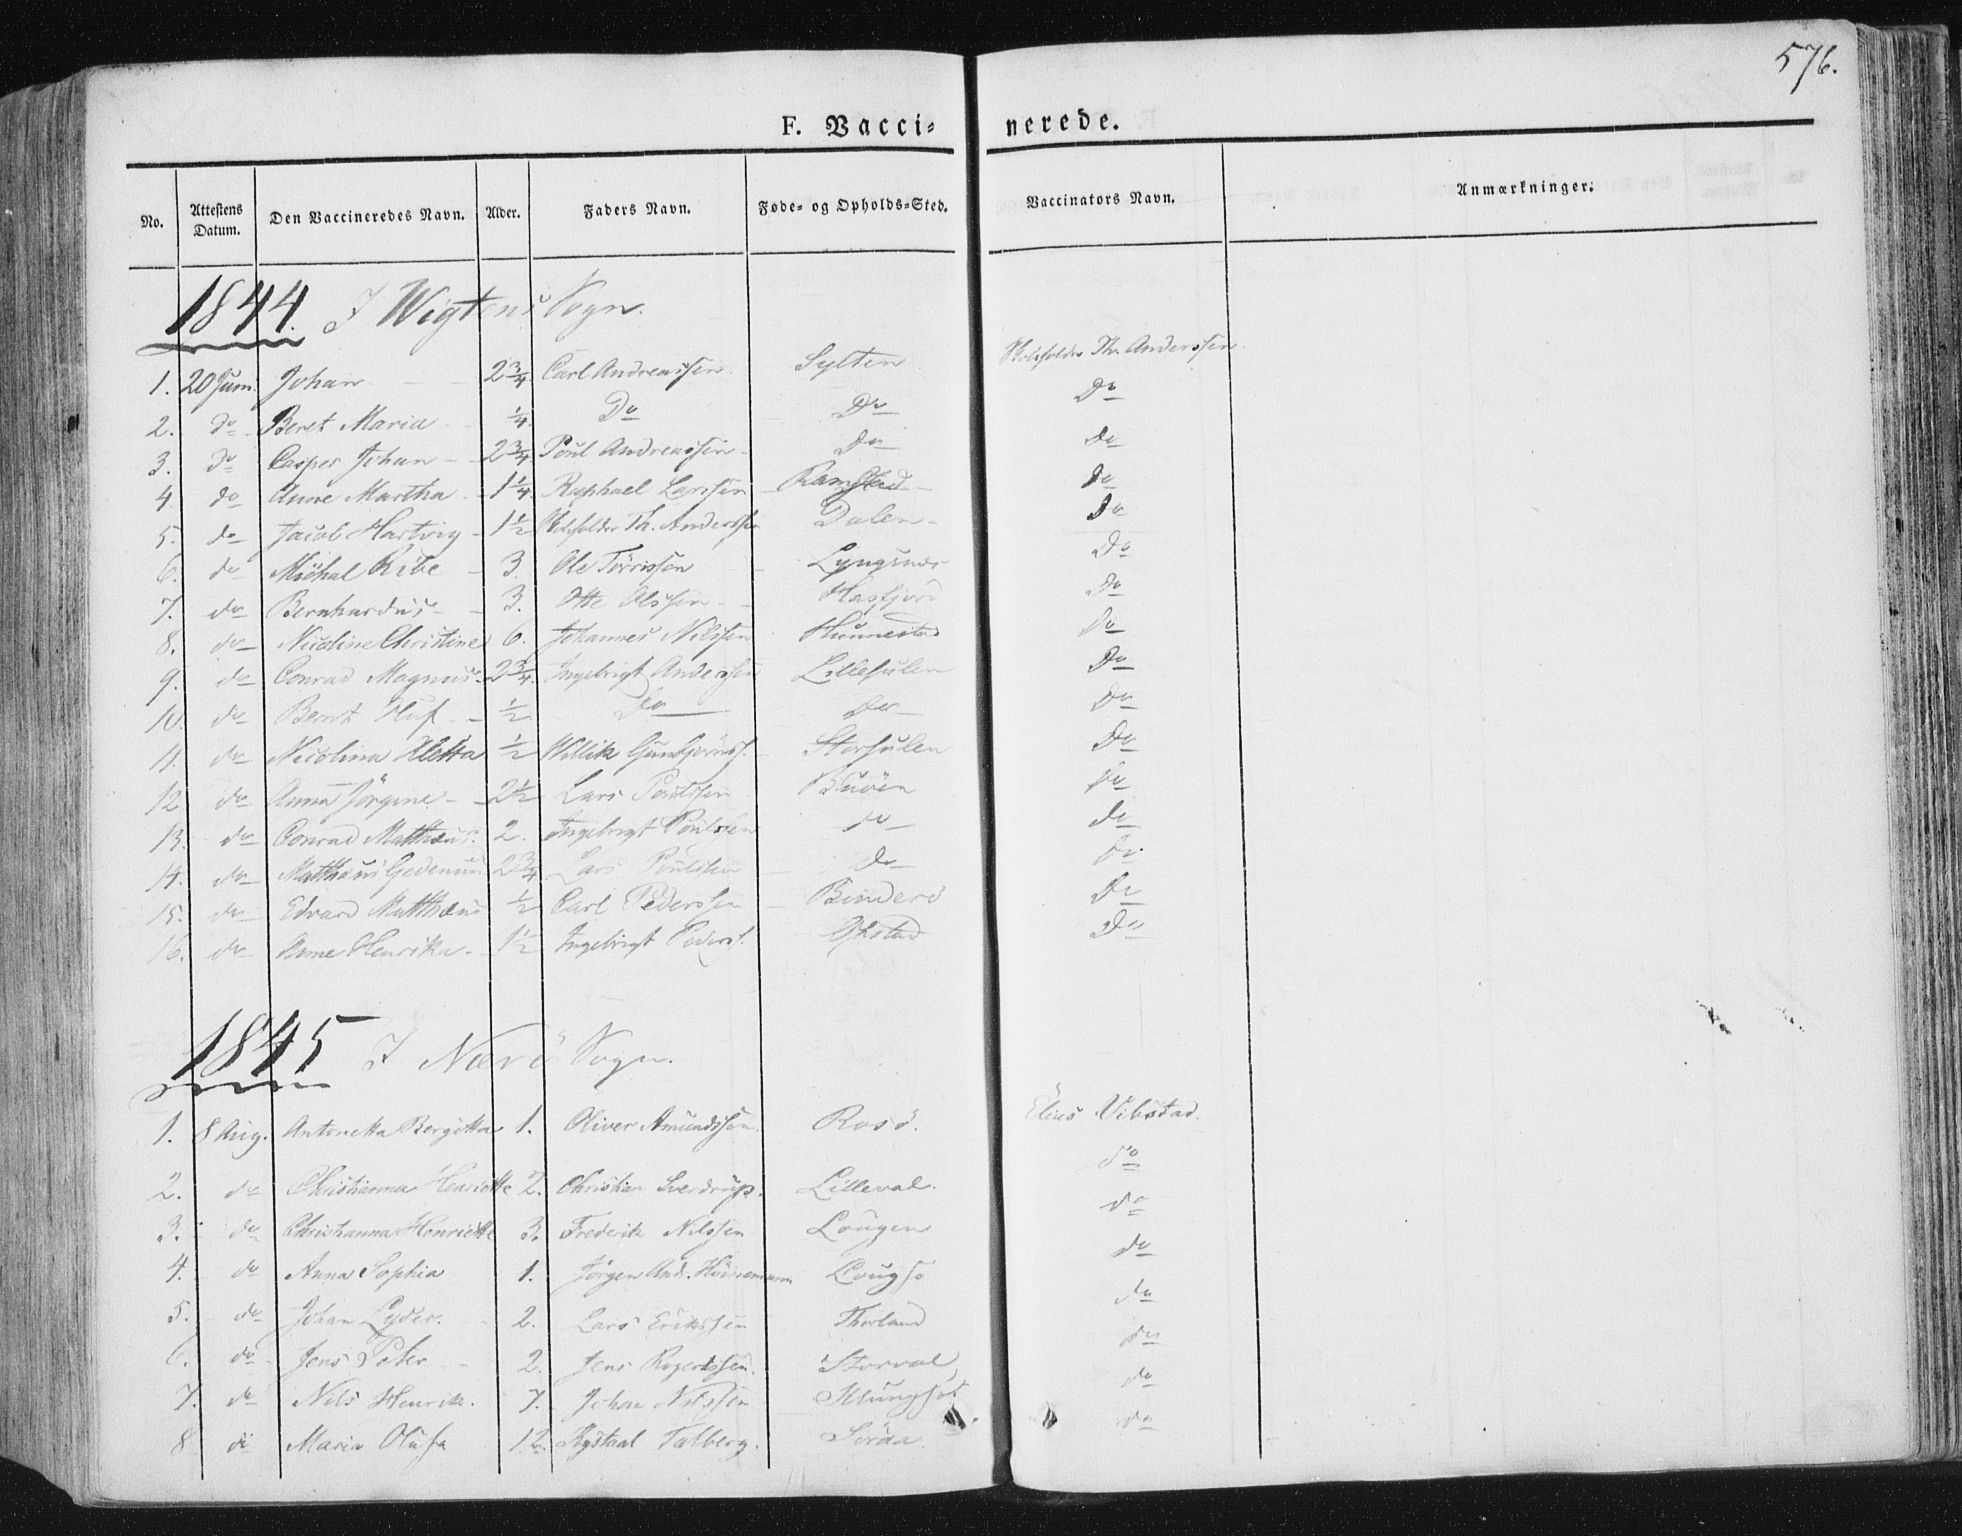 576.
F. Vacci- nerede.
No. Attestens Datum. Den Vaccineredes Navn. Alder. Faders Navn. Føde- og Opholds-Sted. Vaccinators Navn. Anmærkninger.
1844. I Wigtens Sogn.
1. 20 Juni Johan 2 3/4 Carl Andreassen. Sylten Th. Anderssen.
2. do Beret Maria 1/4 Do Do Do
3. do Casper Johan 2 3/4 Poul Andreassen Do do
4. do Anne Martha 1 1/4 Raphael Larssen Ramstad do
5. do Jacob Hartvig 1 1/2 Th. Anderssen Dalen do
6. do Michal Ribe 3 Ole Torrissen Lyngsnes Do
7. do Bernhardus 3. Otte Olssen Hasfjord Do
8. do Nicoline Christine 6. Johannes Nilssen Hunnestad Do
9. do Conrad Magnus 2 3/4. Ingebrigt Anderssen Lillesulen Do
10. do Bernt 1/2 Do do Do
11. do Nicolina Aletta 1/2 Willik Storsulen Do
12 do Anna Jörgine 2 1/2 Lars Poulssen Do
13. do Conrad Matthæus. 2. Ingebrigt Poulssen do do
14. do Matthæus 2 3/4 Lars Poulssen do Do
15. do Edvard Matthæus 1/2 Carl Pederssen Binderö Do
16. do Anne Henrika 1 1/2 Ingebrigt Peders. Do
1845 I Nærö Sogn.
1. 8 Aug. Antonetta Bergitta 1. Oliver Amundssen. Rosö. Elias Vibstad.
2. do Christianna Henriette 2. Christian Sverdrup. Lilleval. do
3. do Christianna Henriette 3. Frederik Nilssen Lougen do
4. do Anna Sophia 1. Jörgen And. Lougsö do
5. do Johan Lyder. 2. Lars Erikssen Thorland do
6. do Jens Peter 2. Jens Rogertssen. Storval do
7. do Nils Henrik. 7. Johan Nilssen do
8 do Maria Olufa 12. Talberg. do